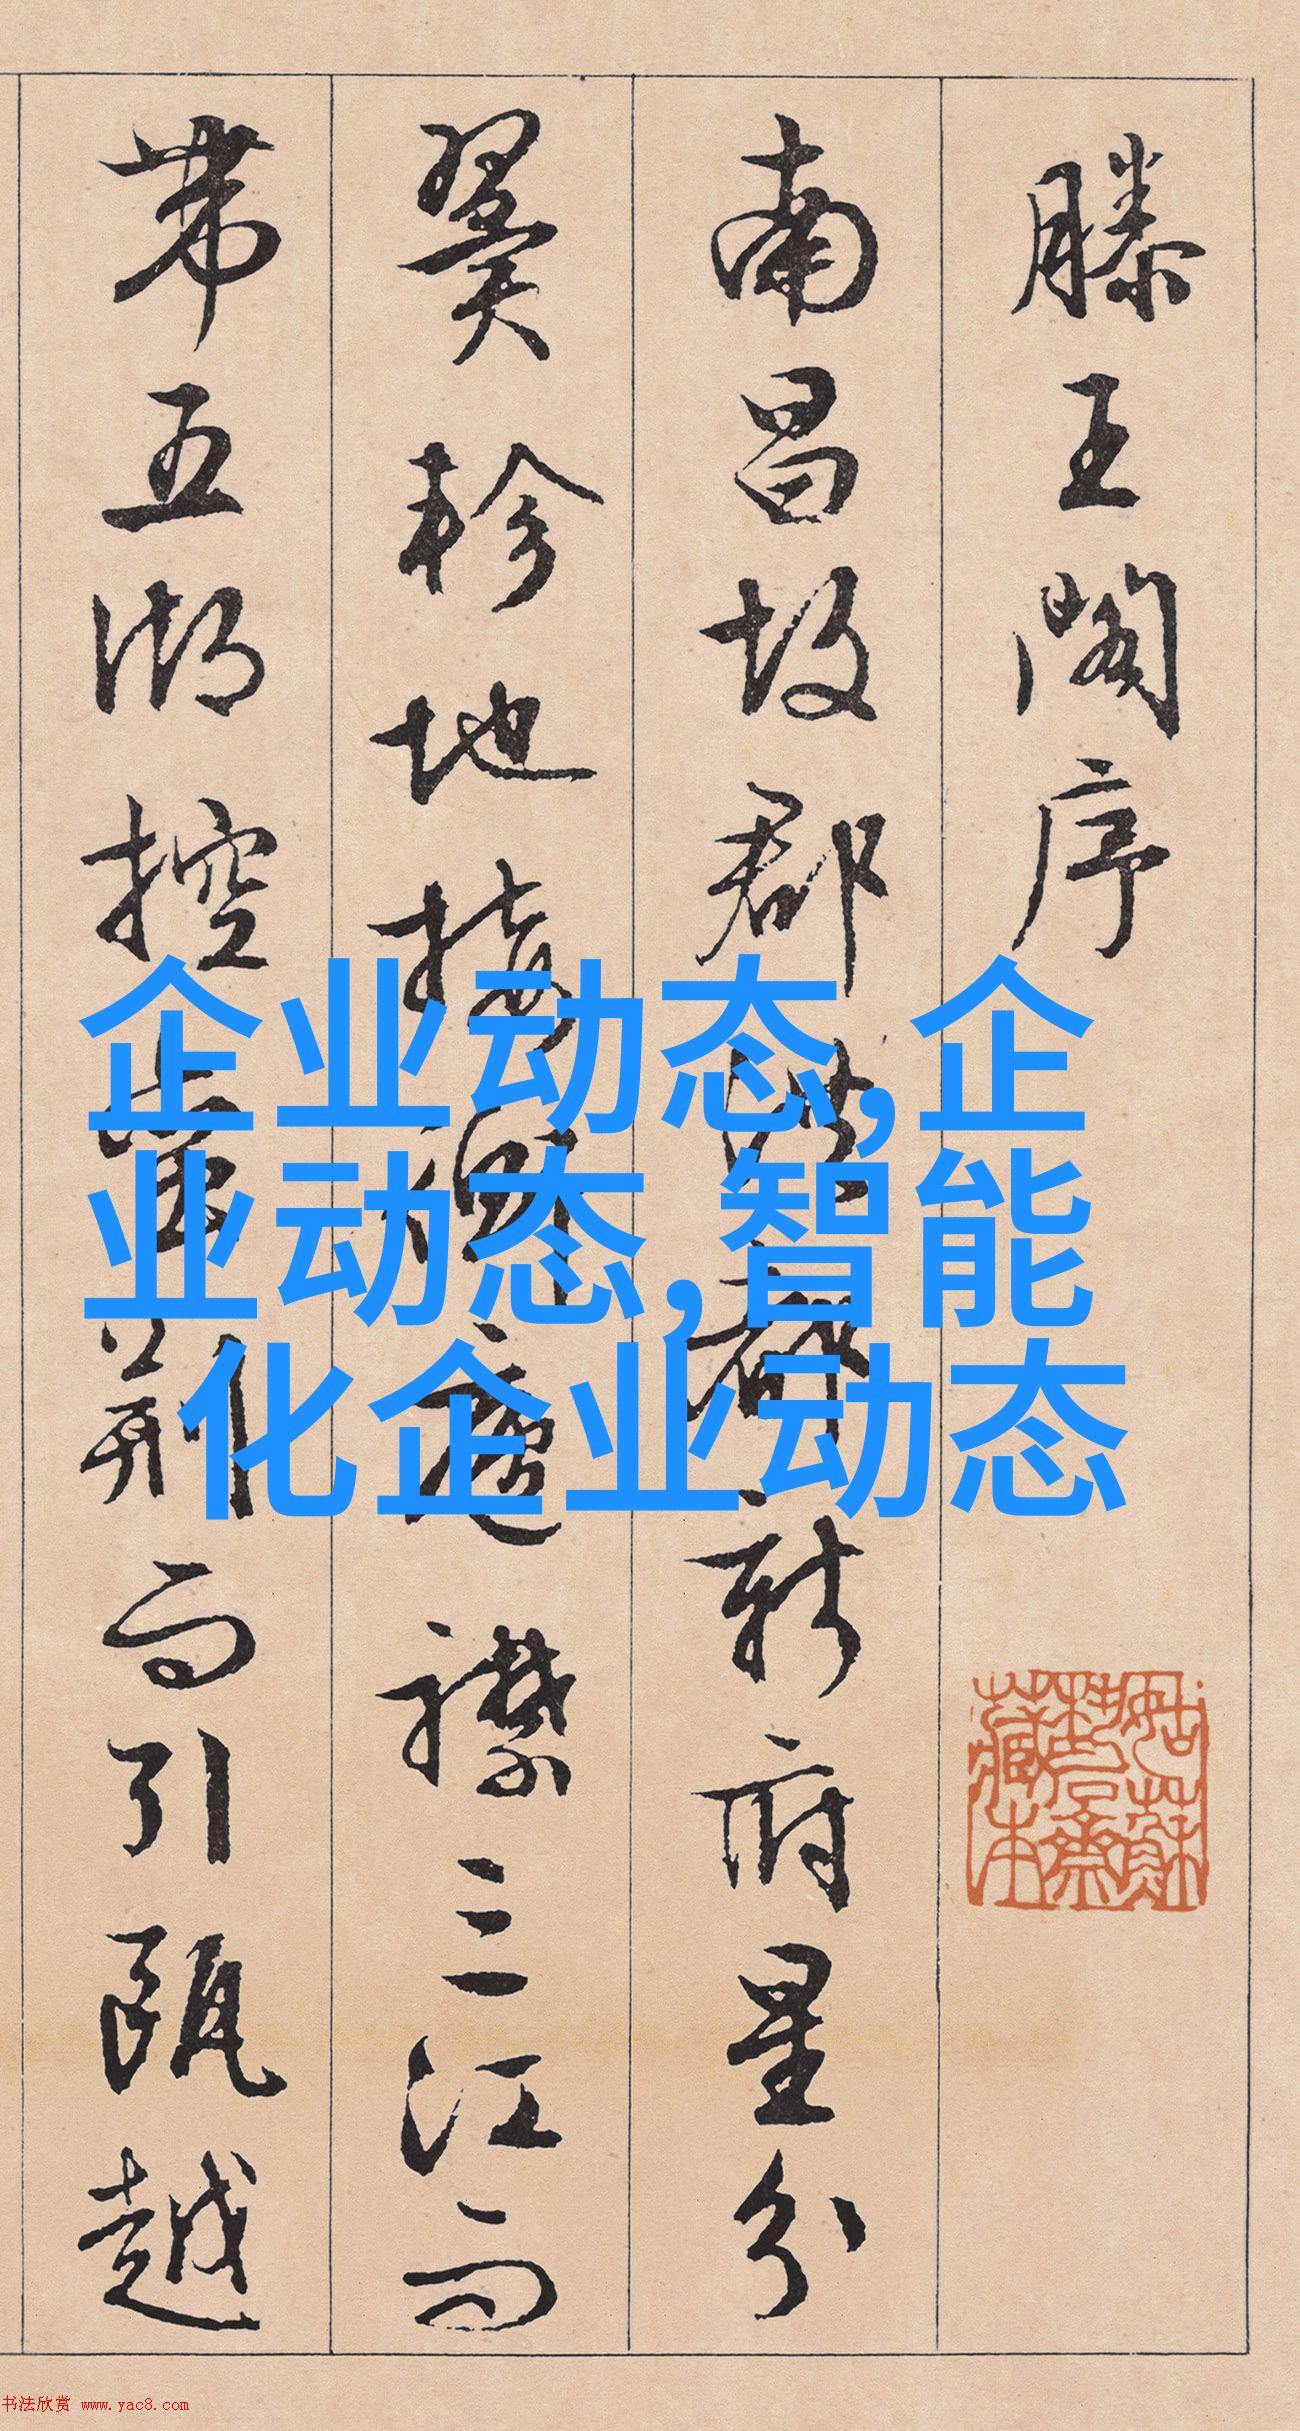 滕王閣序
南昌故郡洪都新府星分
翼軫地接衡廬襟三江而
帶五湖控蠻荊而引甌越
企业动态,企
业动态,智能
化企业动态
书法欣赏 www.yac8.com